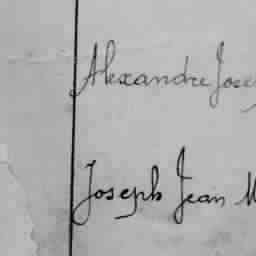 Alexandre Jose
Joseph Jean M